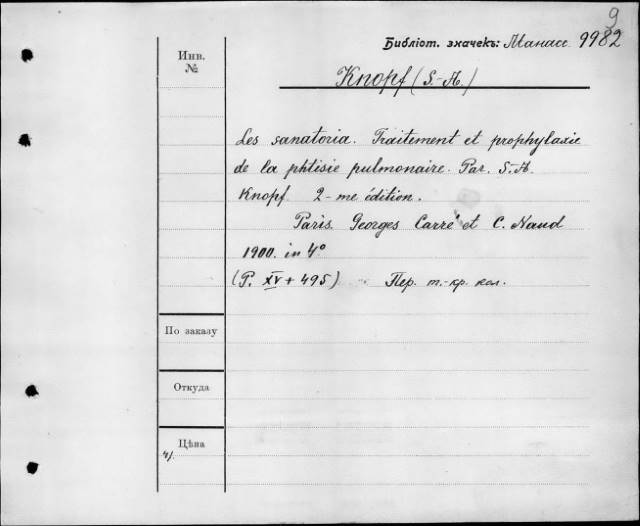 9
Библіот. значекъ: Манасс. 9982
Инв.
№
Knopf (S.-A.)
Les sanatoria. Traitement et prophylaxie
de la phtisie pulmonaire. Par. S.-A.
Knopf. 2-me édition.
Paris. Georges Carré et C. Naud
1900. in 4°
(P. XV + 495) Пер. т.-кр. кол.
По заказу
Откуда
Цѣна